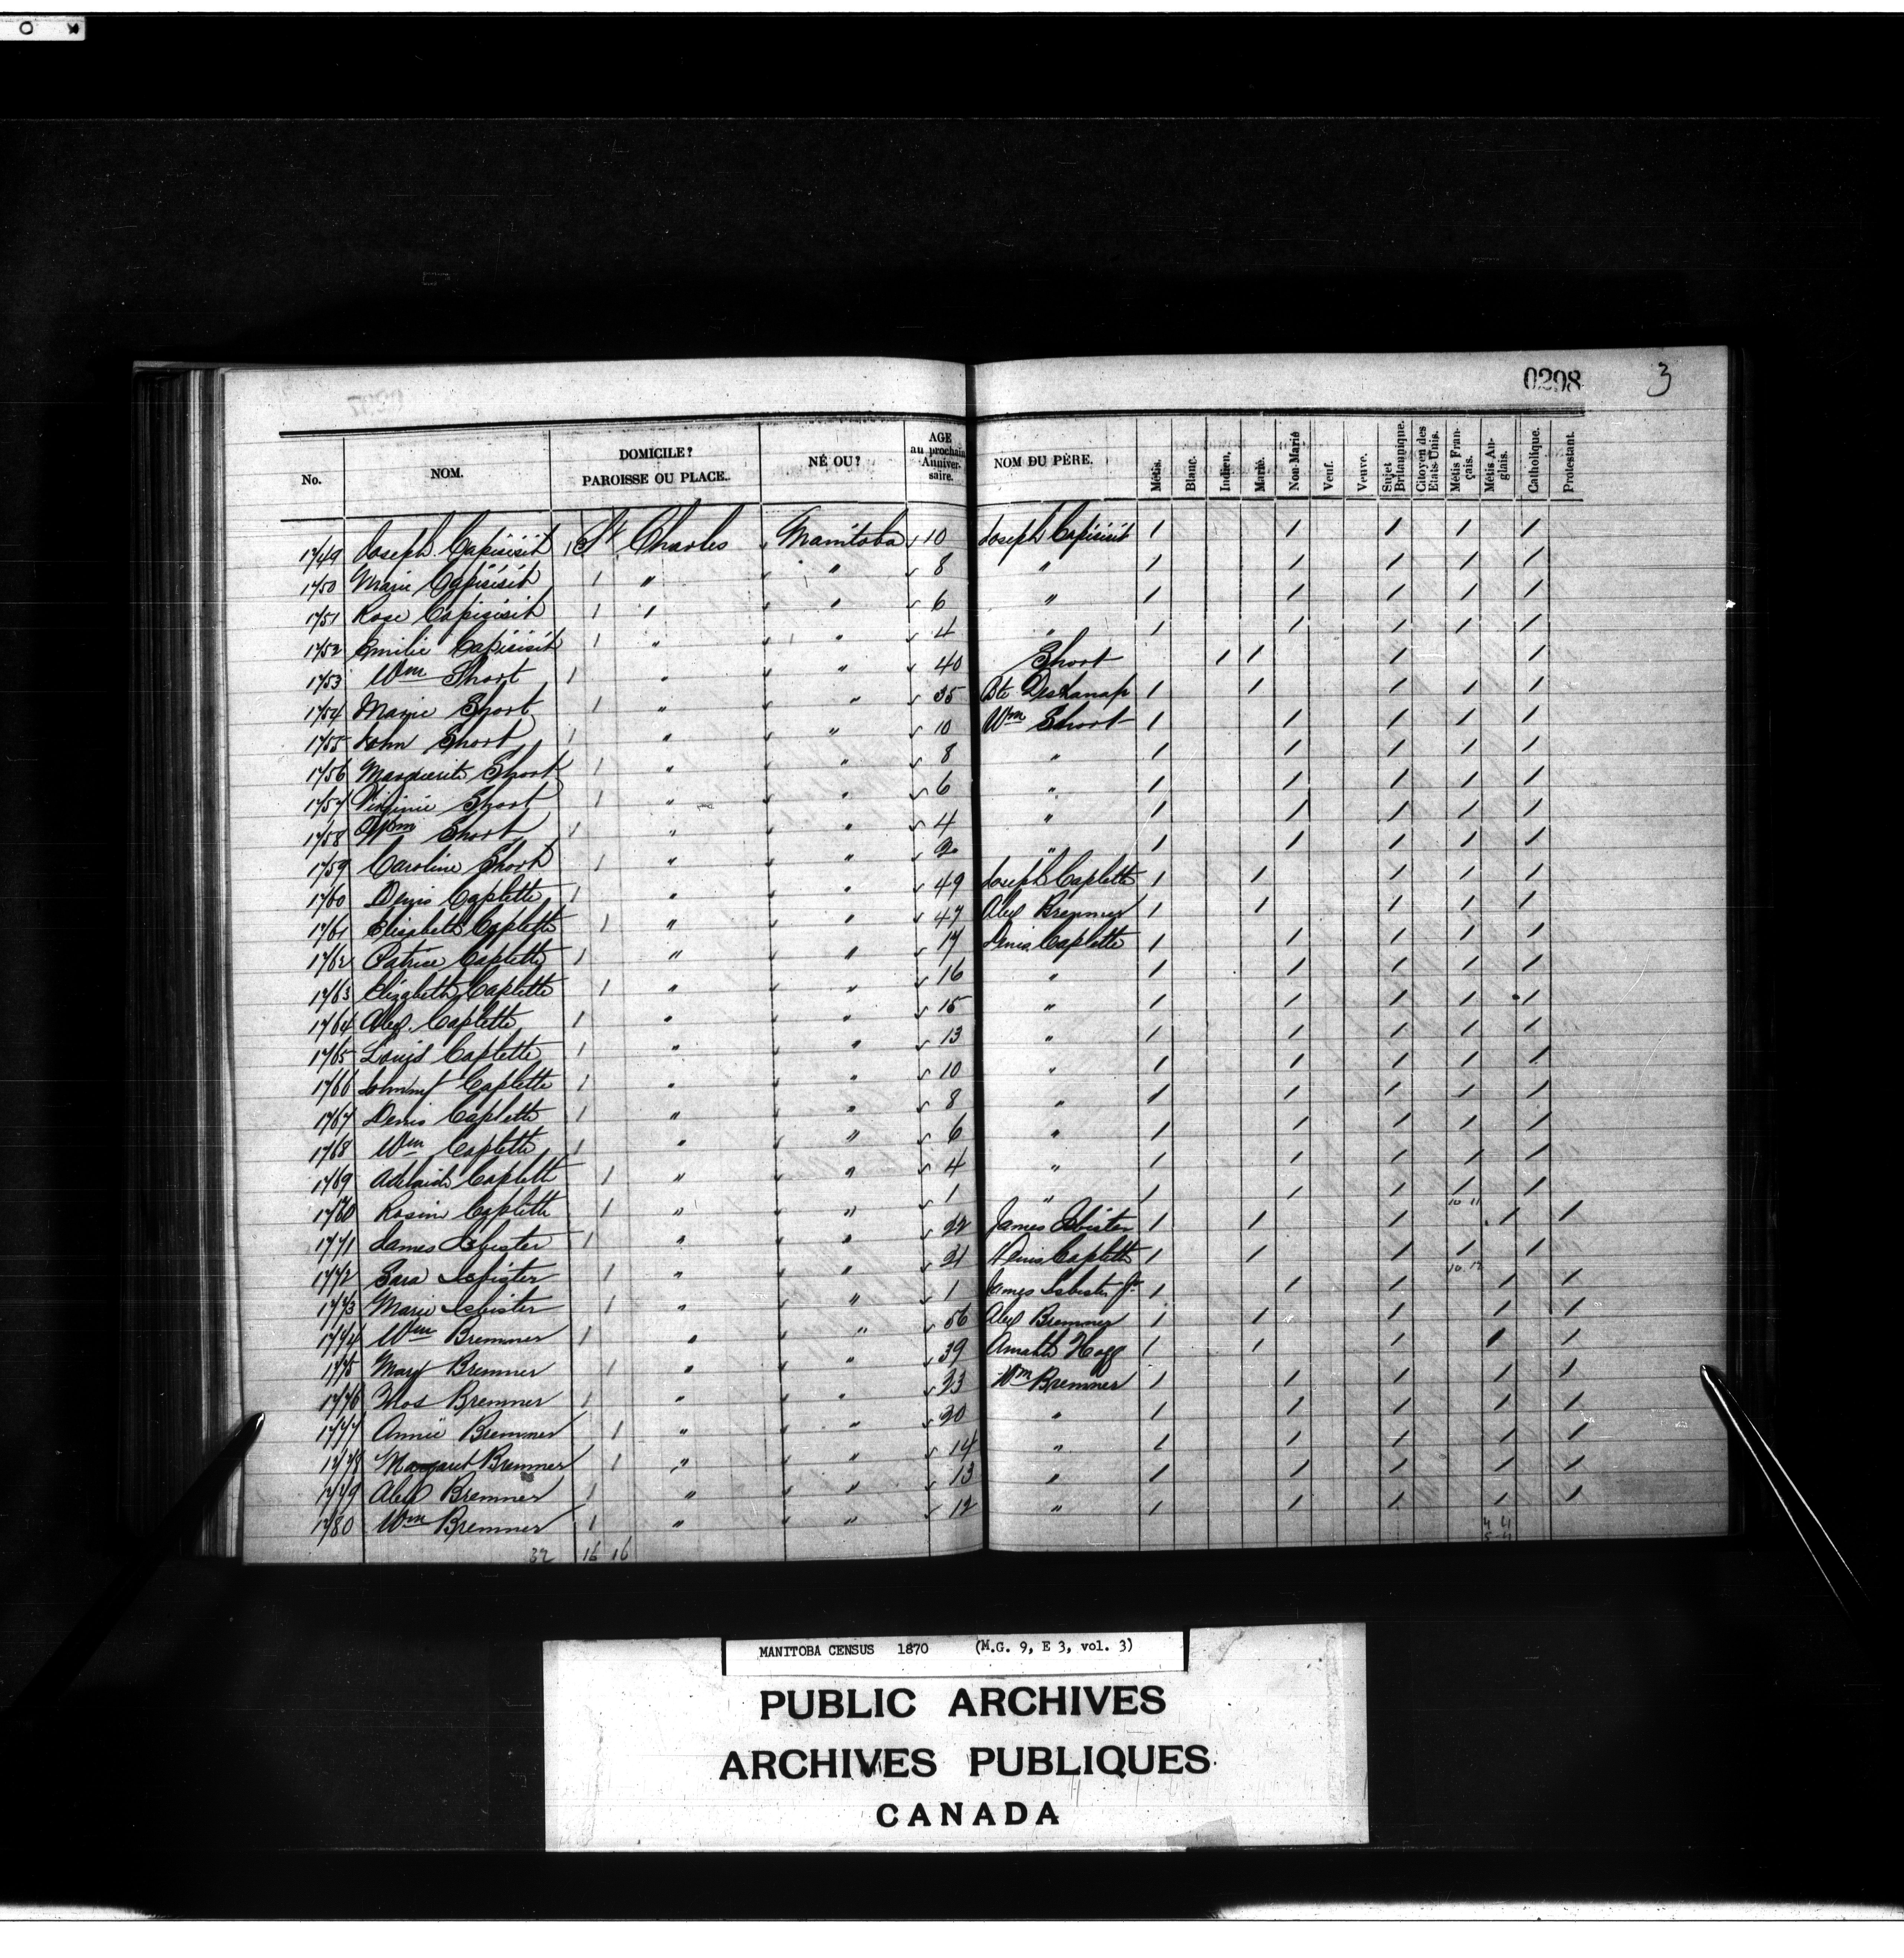 0298 3
No. NOM. DOMICILE? PAROISSE OU PLACE. NÉ OU? AGE au prochain Anniversaire. NOM DU PÈRE. Métis. Blanc. Indien. Marié. Non-Marié Veuf. Veuve. Sujet Britannique. Citoyen des Etats-Unis. Métis Français. Métis Anglais. Catholique. Protestant.
1749 Joseph Capisisit 1 St Charles Manitoba 10 Joseph Capisisit / / / / /
1750 Marie Capisisit 1 " " 8 " / / / / /
1751 Rose Capisisit 1 " " 6 " / / / / /
1752 Emilie Capisisit 1 " " 4 " / / / / /
1753 Wm Short 1 " " 40 Short / / / /
1754 Marie Short 1 " " 35 Bte / / / / /
1755 John Short 1 " " 10 Wm Short / / / / /
1756 Marguerite Short 1 " " 8 " / / / / /
1757 Virginie Short 1 " " 6 " / / / / /
1758 Wm Short 1 " " 4 " / / / / /
1759 Caroline Short 1 " " 2 " / / / / /
1760 Denis Caplette 1 " " 49 Joseph Caplette / / / / /
1761 Elizabeth Caplette 1 " " 47 Alex Bremner / / / / /
1762 Patrice Caplette 1 " " 17 Denis Caplette / / / / /
1763 Elizabeth Caplette 1 " " 16 " / / / / /
1764 Alex. Caplette 1 " " 15 " / / / / /
1765 Louis Caplette 1 " " 13 " / / / / /
1766 Johnny Caplette 1 " " 10 " / / / / /
1767 Denis Caplette 1 " " 8 " / / / / /
1768 Wm Caplette 1 " " 6 " / / / / /
1769 Adelaide Caplette 1 " " 4 " / / / / /
1760 Rosine Caplette 1 " " 1 " / / / / /
10 11
1771 James Isbister 1 " " 22 James Isbister / / / / /
1772 Sara Isbister 1 " " 21 Denis Caplette / / / / /
10 12
1773 Marie Isbister 1 " " 1 James Isbister Jr / / / / /
1774 Wm Bremner 1 " " 56 Alex Bremner / / / / /
1775 Mary Bremner 1 " " 39 Amable Hogg / / / / /
1776 Thos Bremner 1 " " 23 Wm Bremner / / / / /
1777 Annie Bremner 1 " " 20 " / / / / /
1778 Margaret Bremner 1 " " 14 " / / / / /
1779 Alex Bremner 1 " " 13 " / / / / /
1780 Wm Bremner 1 " " 12 " / / / / /
32 16 16
MANITOBA CENSUS 1870 (M.G. 9, E 3, vol. 3)
PUBLIC ARCHIVES
ARCHIVES PUBLIQUES
CANADA